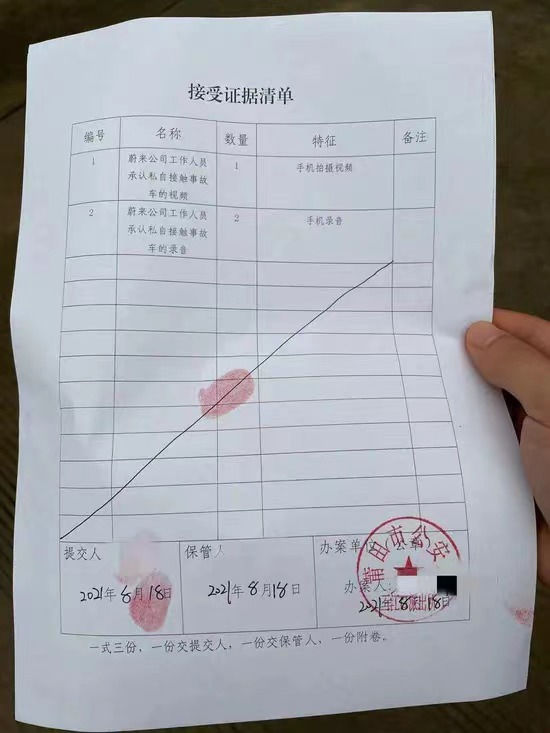 接受证据清单
编号 名称 数量 特征 备注
1 蔚来公司工作人员 1 手机拍摄视频
承认私自接触事故
车的视频
2 蔚来公司工作人员 2 手机录音
承认私自接触事故
车的录音
提交人 保管人 办案单位 公章
莆田市公安
办案人:
2021年8月18日 2021年8月18日 2021年8月18日
派出
一式三份，一份交提交人，一份交保管人，一份附卷。